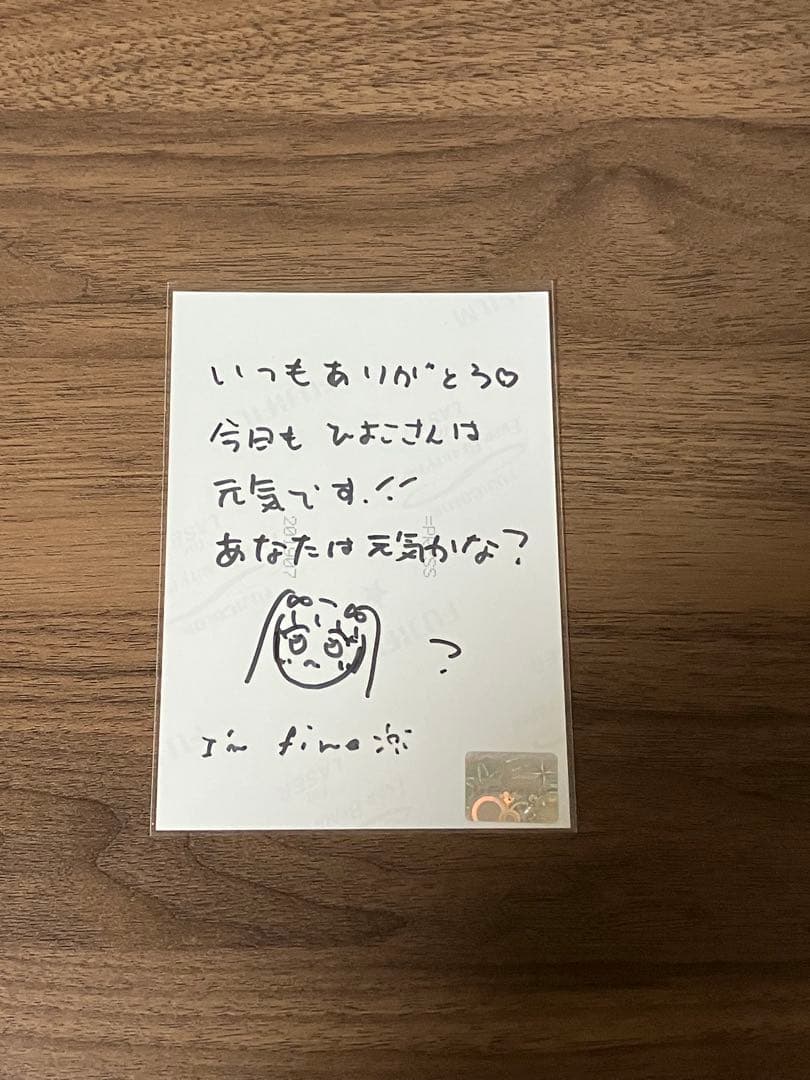 いつもありがとう♡
今日も ひよこさんは
元気です!!
あなたは元気かな?
?
I'm fine